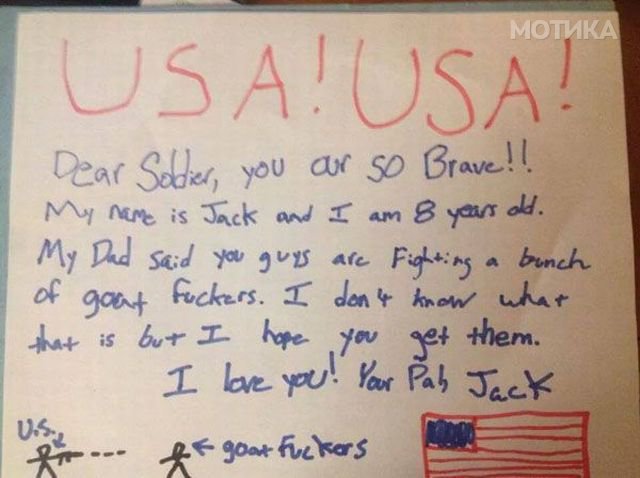 МОТИКА
USA! USA!
Dear Soldier, you our so Brave!!
My name is Jack and I am 8 years old.
My Dad said you guys are Fighting a bunch
of goat fuckers. I don't know what
that is but I hope you get them.
I love you! Your Pal, Jack
U.S.
goat Fuckers